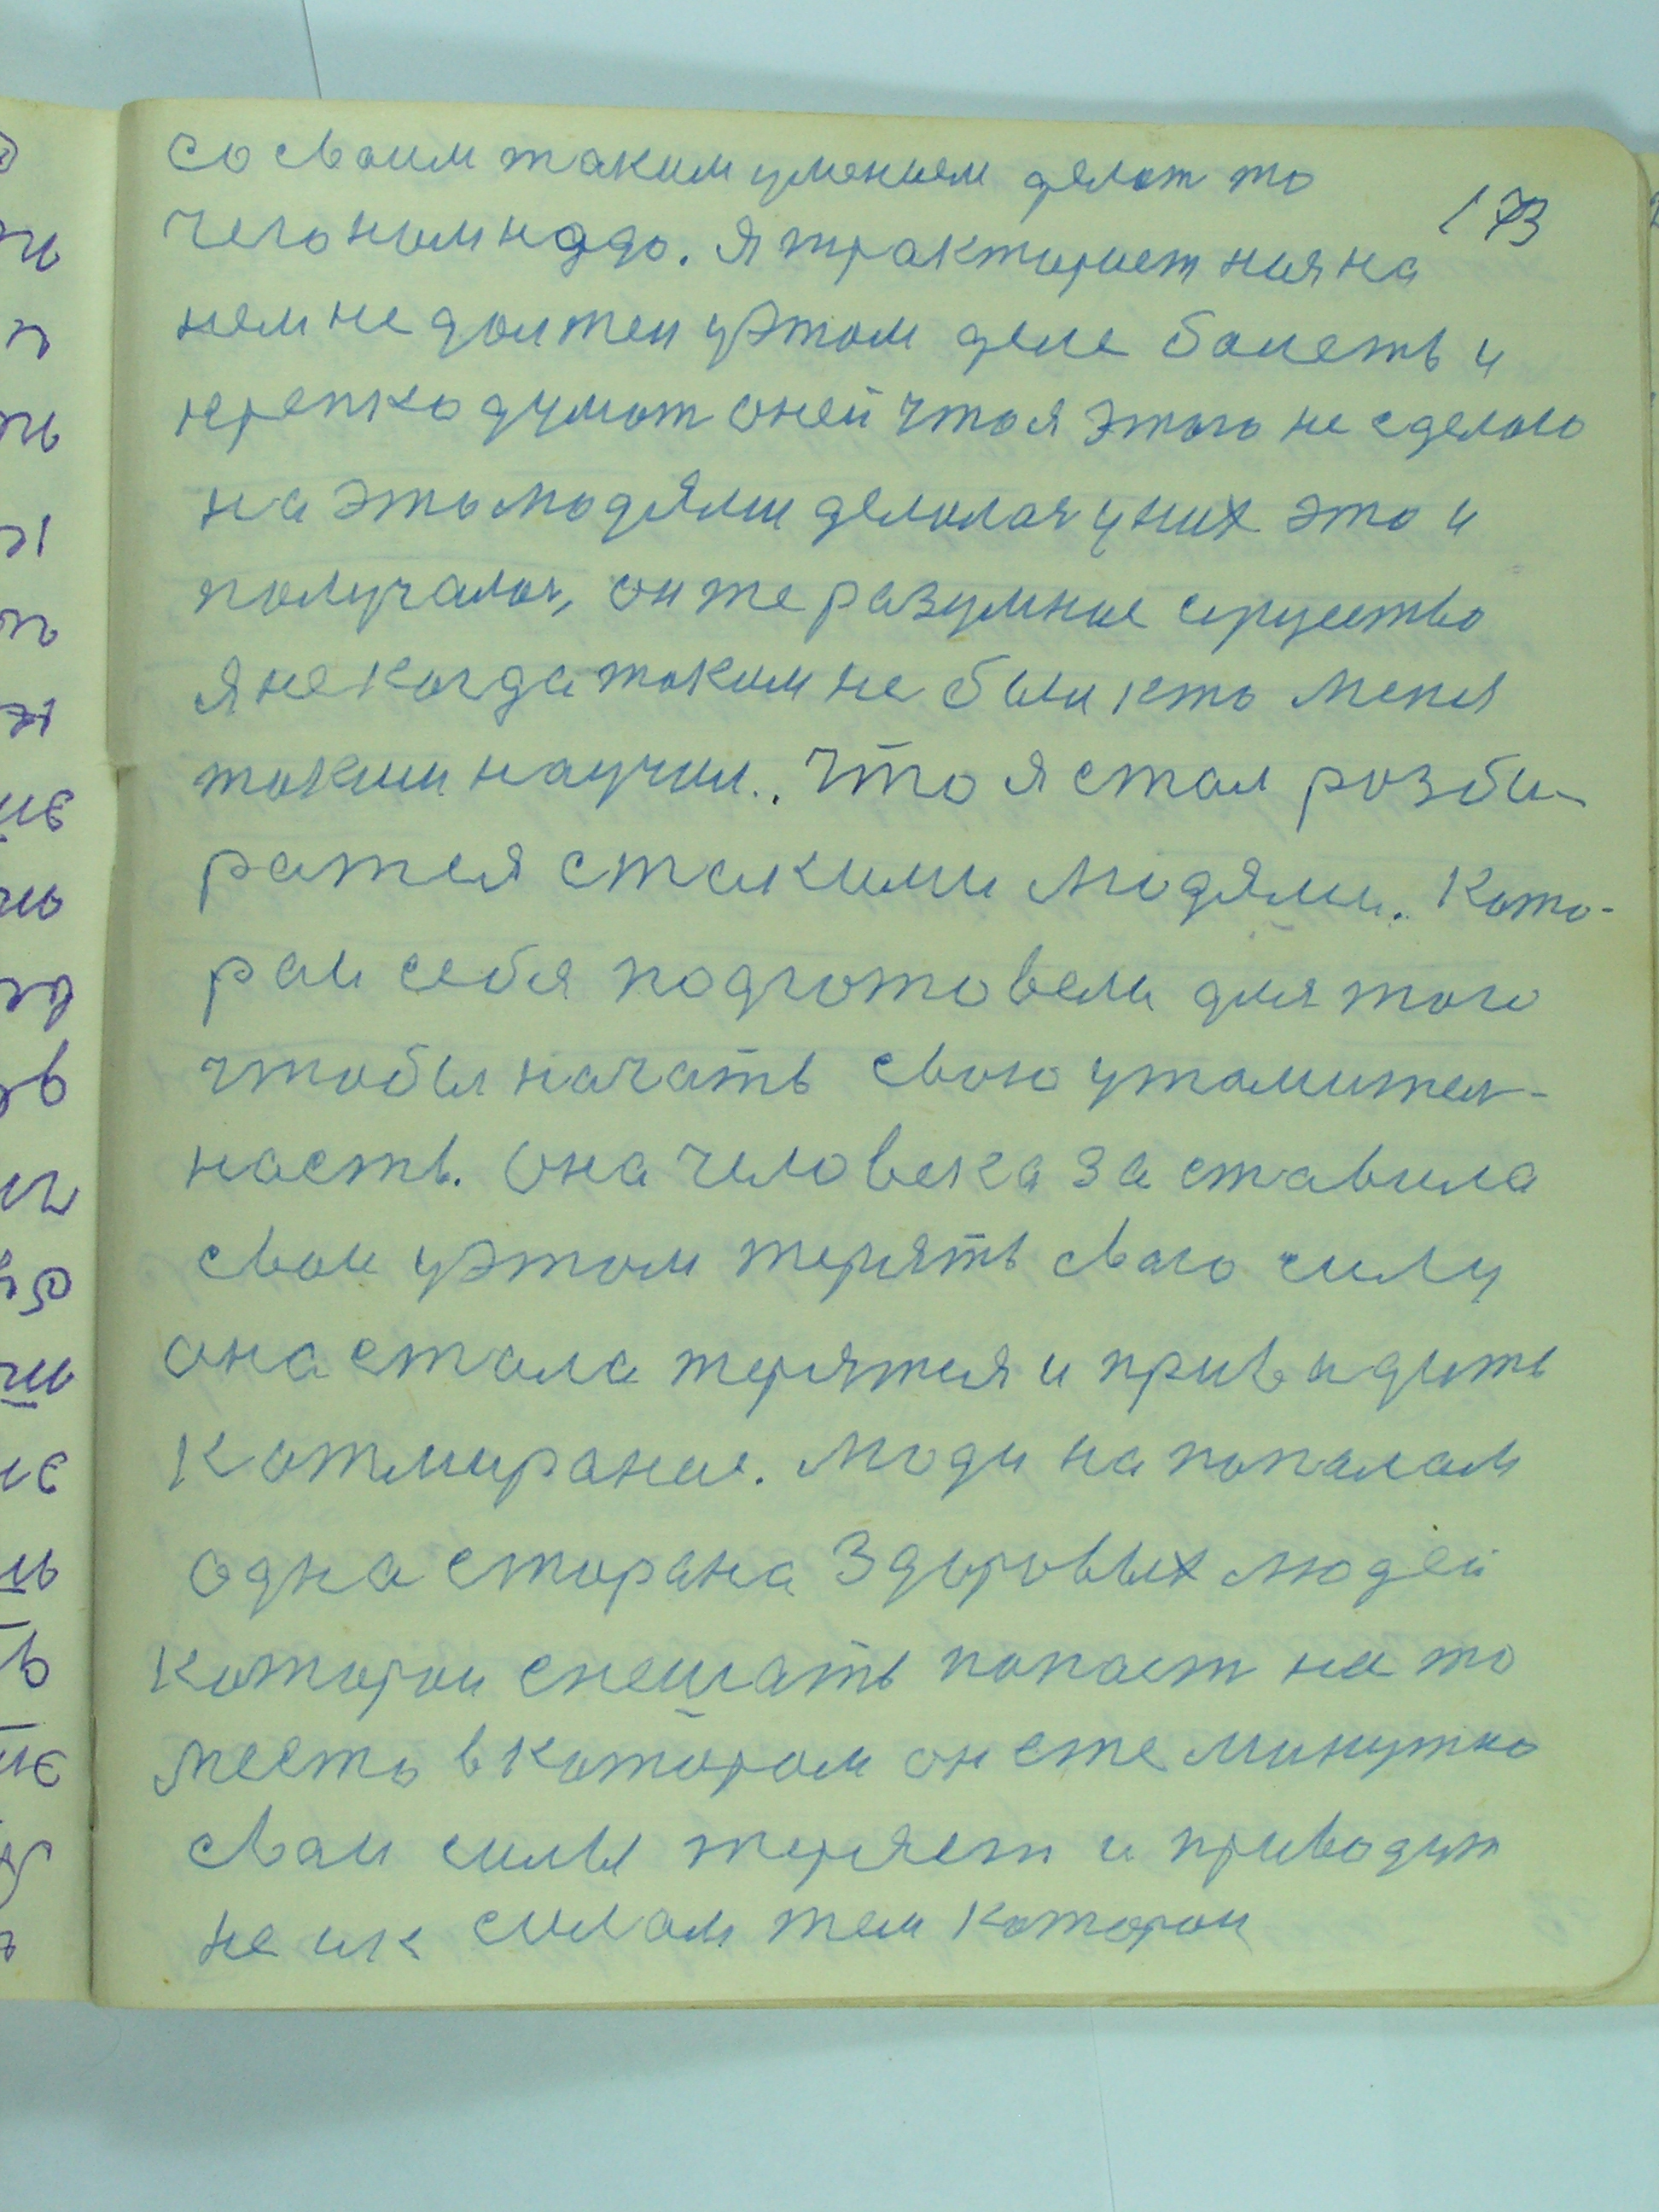 со своим таким умением делат то
173
чего нам надо. Я тракторист ная на
нем не должен уэтом деле болеть и
крепко думат оней что я этого не сделаю
на это людями делалась у них это и
получалось, он же разумное существо
я некогда таким не был кто меня
таким научил. Что я стал розби-
ратся стакими людями. Кото-
раи себя подготовели для того
чтобы начать свою утамител-
насть. Она человека заставила
сваи уэтом терять сваю силу
она стала терятся и привадить
к отмирание. Люди на попалам
одна старана здоровых людей
которои спешать попаст на то
место в котором он сте минутно
сваи силы теряет и приводит
не ик силам тем которои